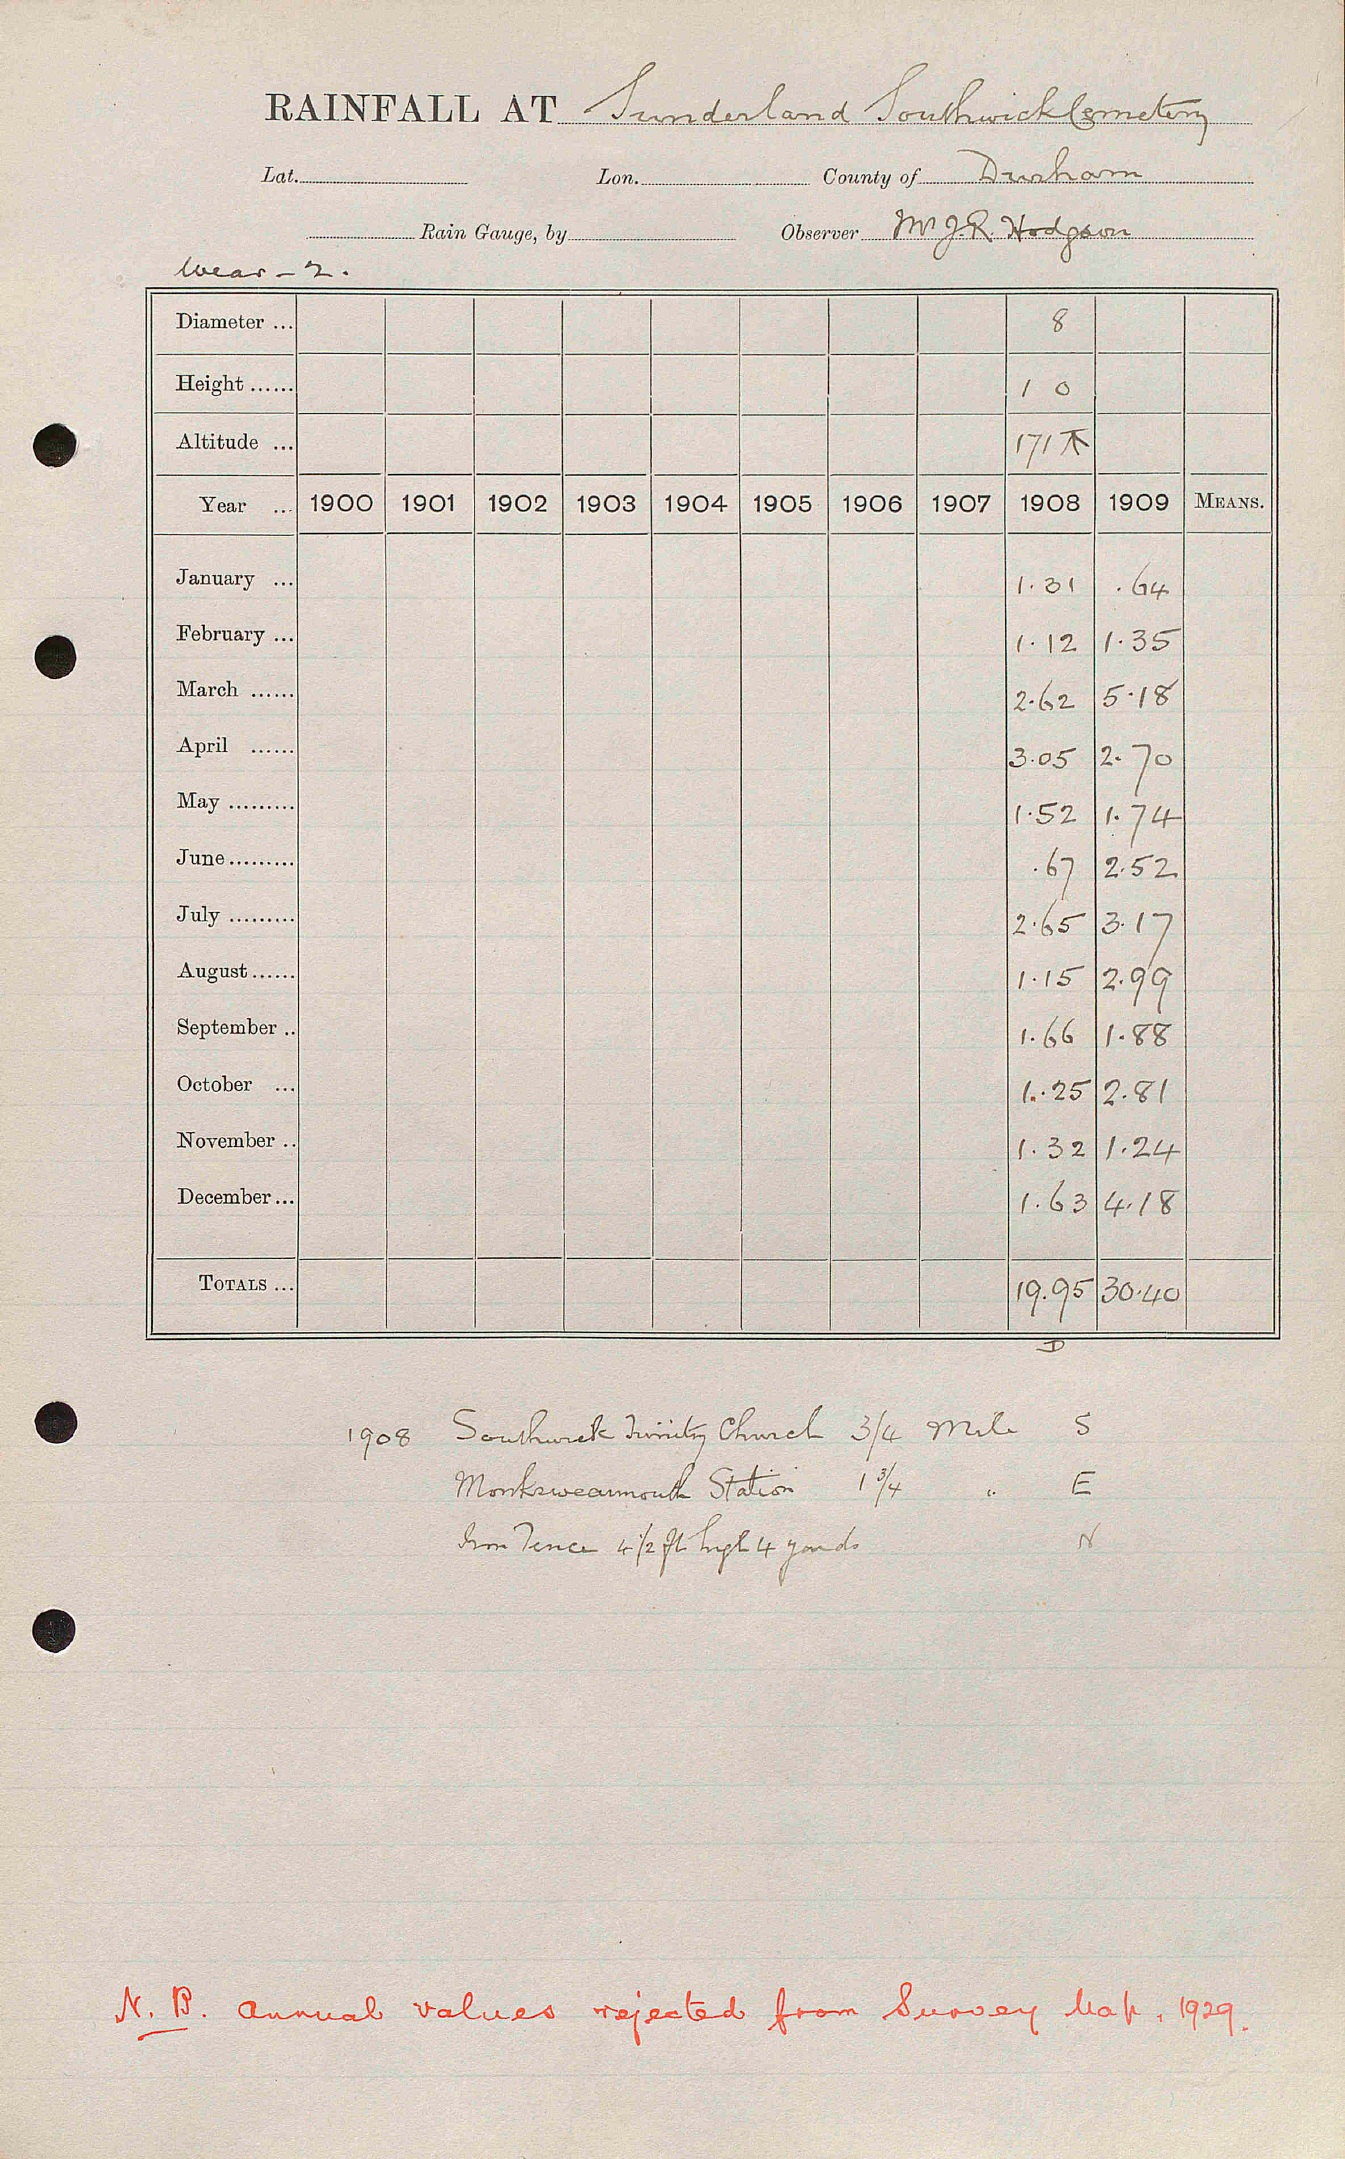 RAINFALL AT Sunderland Southwick Cemetery
Lat. Lon. County of Durham
Rain Gauge, by Observer Mr J. R. Hodgson
Wear - 2.
Diameter ... 8
Height ...... 1 0
Altitude ... 171
Year ... 1900 1901 1902 1903 1904 1905 1906 1907 1908 1909 MEANS.
January ... 1.31 .64
February ... 1.12 1.35
March ...... 2.62 5.18
April ...... 3.05 2.70
May ......... 1.52 1.74
June ......... .67 2.52
July ......... 2.65 3.17
August ...... 1.15 2.99
September .. 1.66 1.88
October ... 1.25 2.81
November .. 1.32 1.24
December ... 1.63 4.18
TOTALS ... 19.95 30.40
D
1908 Southwick Trinity Church 3/4 Mile S
Monkswearmouth Station 1 3/4 " E
Iron Fence 4 1/2 ft high 4 yards N
N. B. Annual values rejected from Survey Map, 1929.